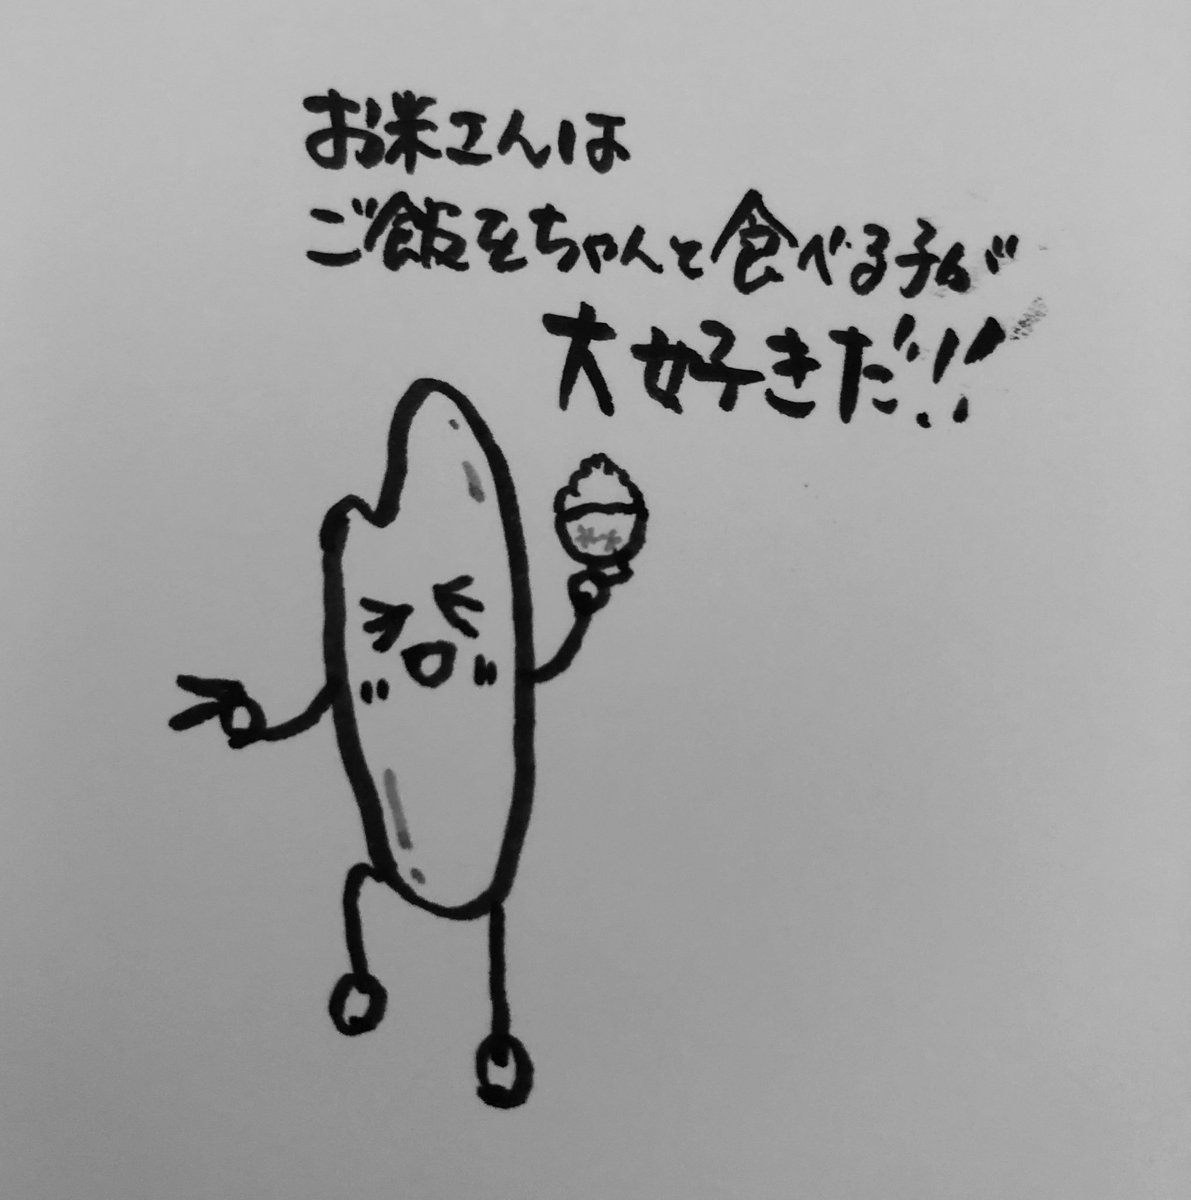 お米さんは
ご飯をちゃんと食べる子が
大好きだ!!